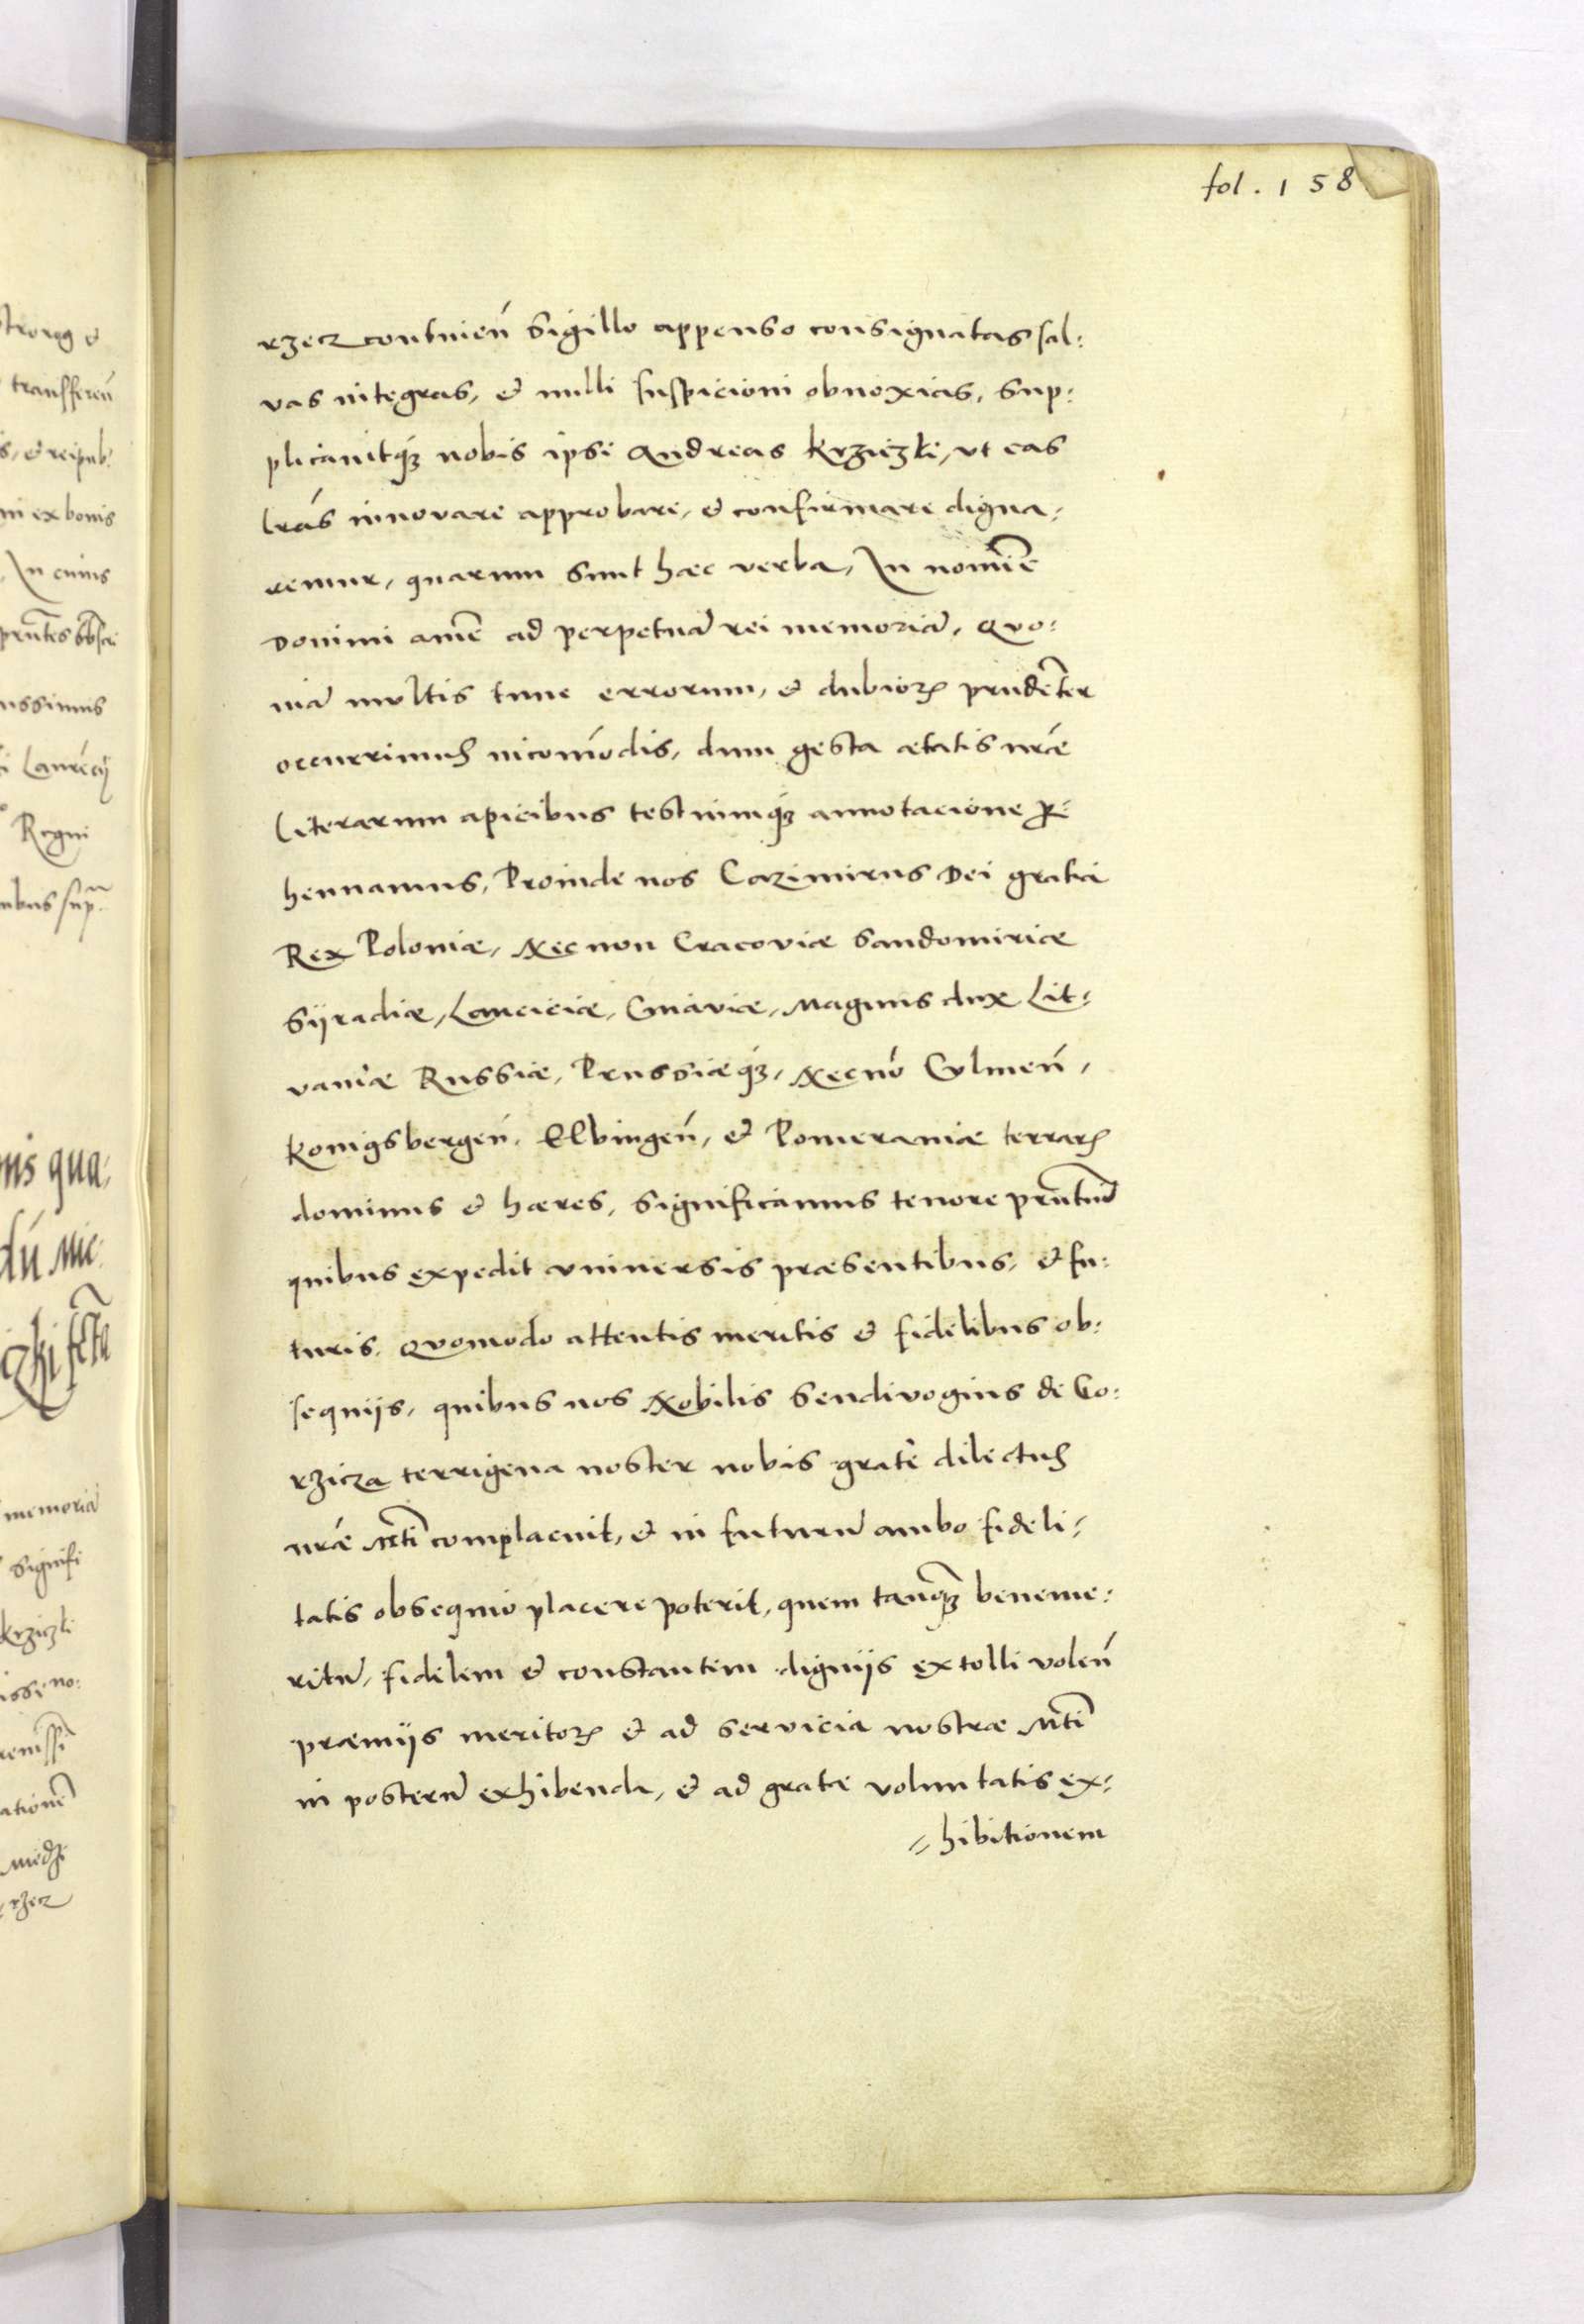 fol. 158
rzecz continen̄ Sigillo appenso consignatas sal:
vas integras, et nulli suspicioni obnoxias, Sup:
plicavitq́ꝫ nobis ipse Andreas Krziczki, vt eas
lrás innovare approbare, et confirmare digna:
remur, quarum sunt haec verba, In nomīe
Domini amē ad perpetuā rei memoriā, Quo:
niā multis tunc errorum, et dubiorꝝ prudēter
occurrimus incōmodis, dum gesta aetatis nrāe
literarum apicibus testiumq́ꝫ annotacione ꝑ:
hennamus, Proinde nos Cazimirus Dei gratia
Rex Poloniae, Nec non Cracoviae Sandomiriae
Syradiae, Lanciciae, Cuiaviae, Magnus dux Lit:
vaniae Russiae, Prussiaeq́ꝫ, Necnō Culmen̄,
Konigsbergen̄, Elbingen̄, et Pomeraniae terrarꝝ
dominus et haeres, Significamus tenore prn̄tiū
quibus expedit vniuersis praesentibus, et fu:
turis, Quomodo attentis meritis et fidelibus ob:
sequijs, quibus nos Nobilis Sendivogius de Go:
rzicza terrigena noster nobis grate dilectus
nrāe Mti complacuit, et in futurū ambo fideli:
tatis obsequio placere poterit, quem tanq̄ꝫ beneme:
ritū, fidelem et constantem dignijs extolli volen̄
praemijs meritorꝝ et ad servicia nostrae Mti
in posterū exhibenda, et ad gratae voluntatis ex:
= hibitionem
strorog et
transferen̄
s, et reipub:
ni ex bonis
In cuius
prn̄tes
ussimus
i Laurēcij
Regni
ibus sup
nis qua:
dū Me:
memoriā
signifi
Krziczki
issi no:
ationē
Miedzi
rzecz